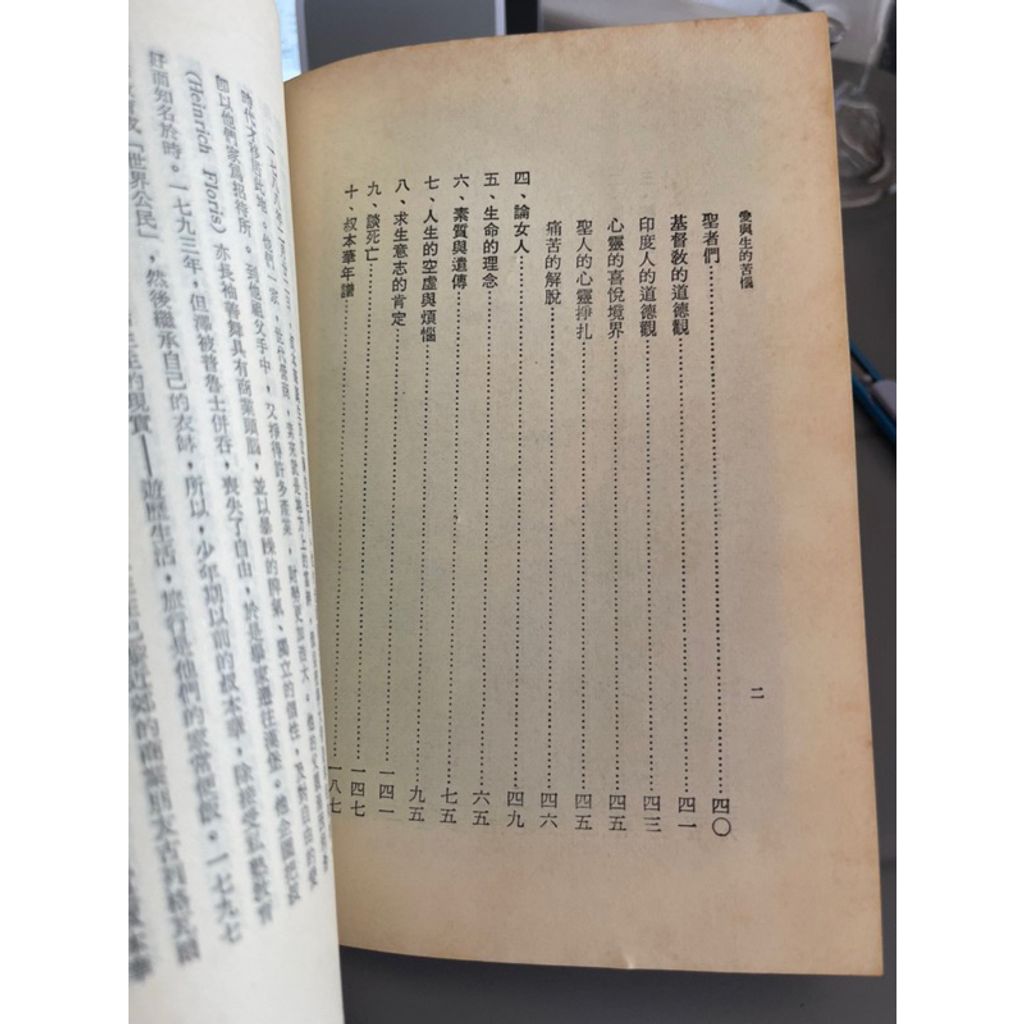 愛與生的苦惱
二
聖者們……四〇
基督教的道德觀……四一
印度人的道德觀……四三
心靈的喜悅境界……四五
聖人的心靈掙扎……四五
痛苦的解脫……四六
四、論女人……四九
五、生命的理念……六五
六、素質與遺傳……七五
七、人生的空虛與煩惱……九五
八、求生意志的肯定……一四一
九、談死亡……一四七
十、叔本華年譜……一八七
時代才移居此地。他們一家,世代營商,
到他祖父手中,又掙得許多產業,財勢更加浩大。他的父親
即以他們家為招待所。
(Heinrich Floris)亦長袖善舞具有商業頭腦,並以暴躁的脾氣、獨立的個性,及對自由的愛
好而知名於時。一七九三年,但澤被普魯士併吞,喪失了自由,於是舉家遷往漢堡。他企圖把叔
「世界公民」,然後繼承自己的衣缽,所以,少年期以前的叔本華,除接受私塾教育
的現實——遊歷生活,旅行是他們的家常便飯。一七九七